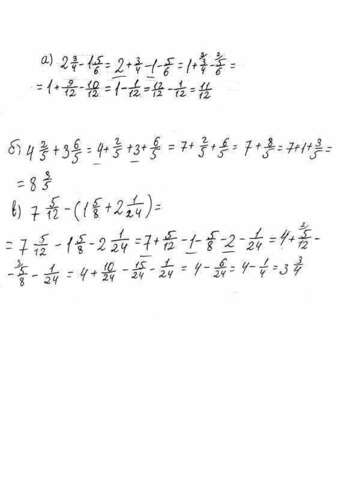 а) 2 3/4 - 1 5/6 = 2 + 3/4 - 1 - 5/6 = 1 + 3/4 - 5/6 =
= 1 + 9/12 - 10/12 = 1 - 1/12 = 12/12 - 1/12 = 11/12
б) 4 2/5 + 3 6/5 = 4 + 2/5 + 3 + 6/5 = 7 + 2/5 + 6/5 = 7 + 8/5 = 7 + 1 + 3/5 =
= 8 3/5
в) 7 5/12 - (1 5/8 + 2 1/24) =
= 7 5/12 - 1 5/8 - 2 1/24 = 7 + 5/12 - 1 - 5/8 - 2 - 1/24 = 4 + 5/12 -
- 5/8 - 1/24 = 4 + 10/24 - 15/24 - 1/24 = 4 - 6/24 = 4 - 1/4 = 3 3/4